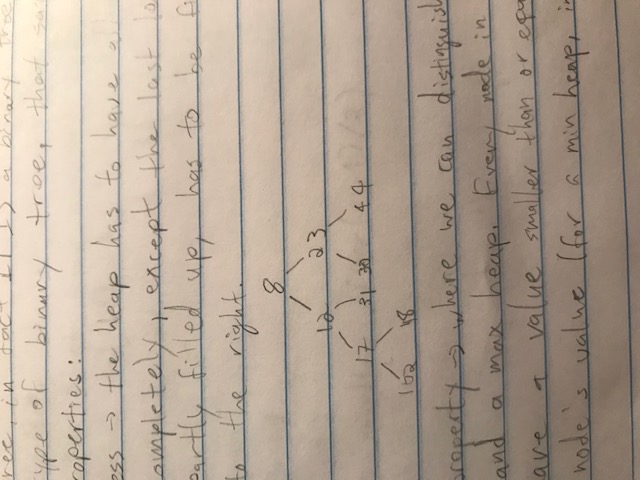 ree, in fact it is a binary tree
type of binary tree, that sa
roperties:
ess → the heap has to have a
ompletely, except the last
partly filled up, has to be fi
to the right.
8
12 23
17 31 30 44
102 18
property → where we can distinguish
and a max heap. Every node in
ave a value smaller than or equa
node's value (for a min heap, i